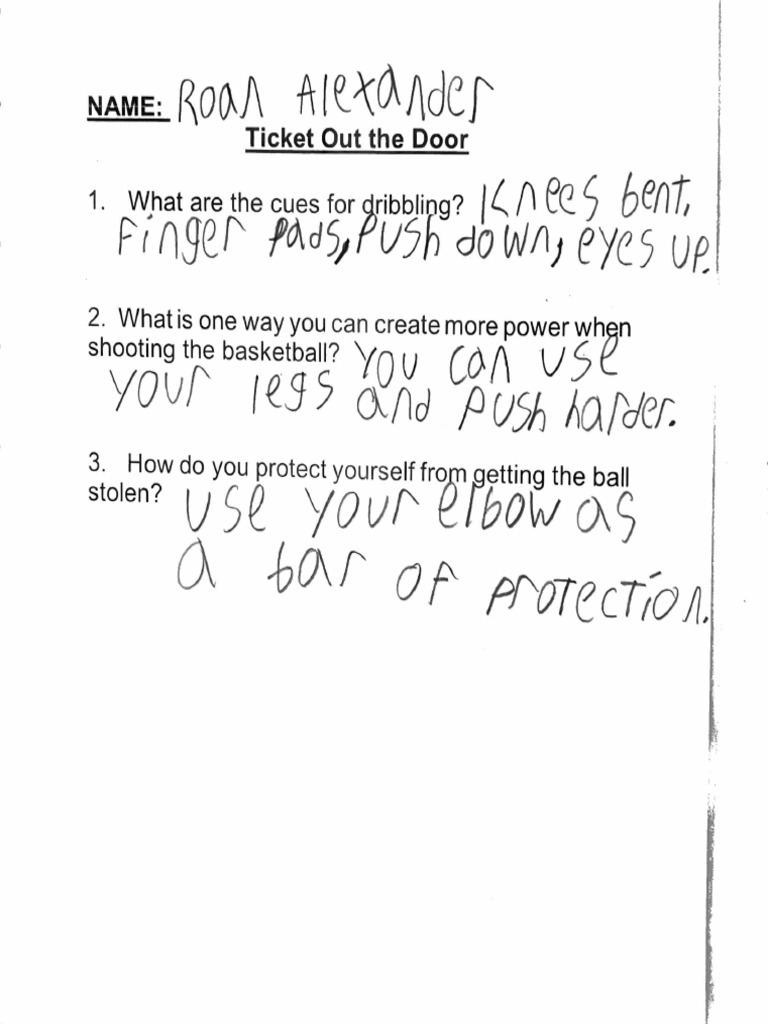 NAME: Roan Alexander
Ticket Out the Door
1. What are the cues for dribbling? Knees bent,
Finger pads, Push down, eyes up.
2. What is one way you can create more power when
shooting the basketball? You can use
your legs and push harder.
3. How do you protect yourself from getting the ball
stolen? Use your elbow as
a bar of protection.